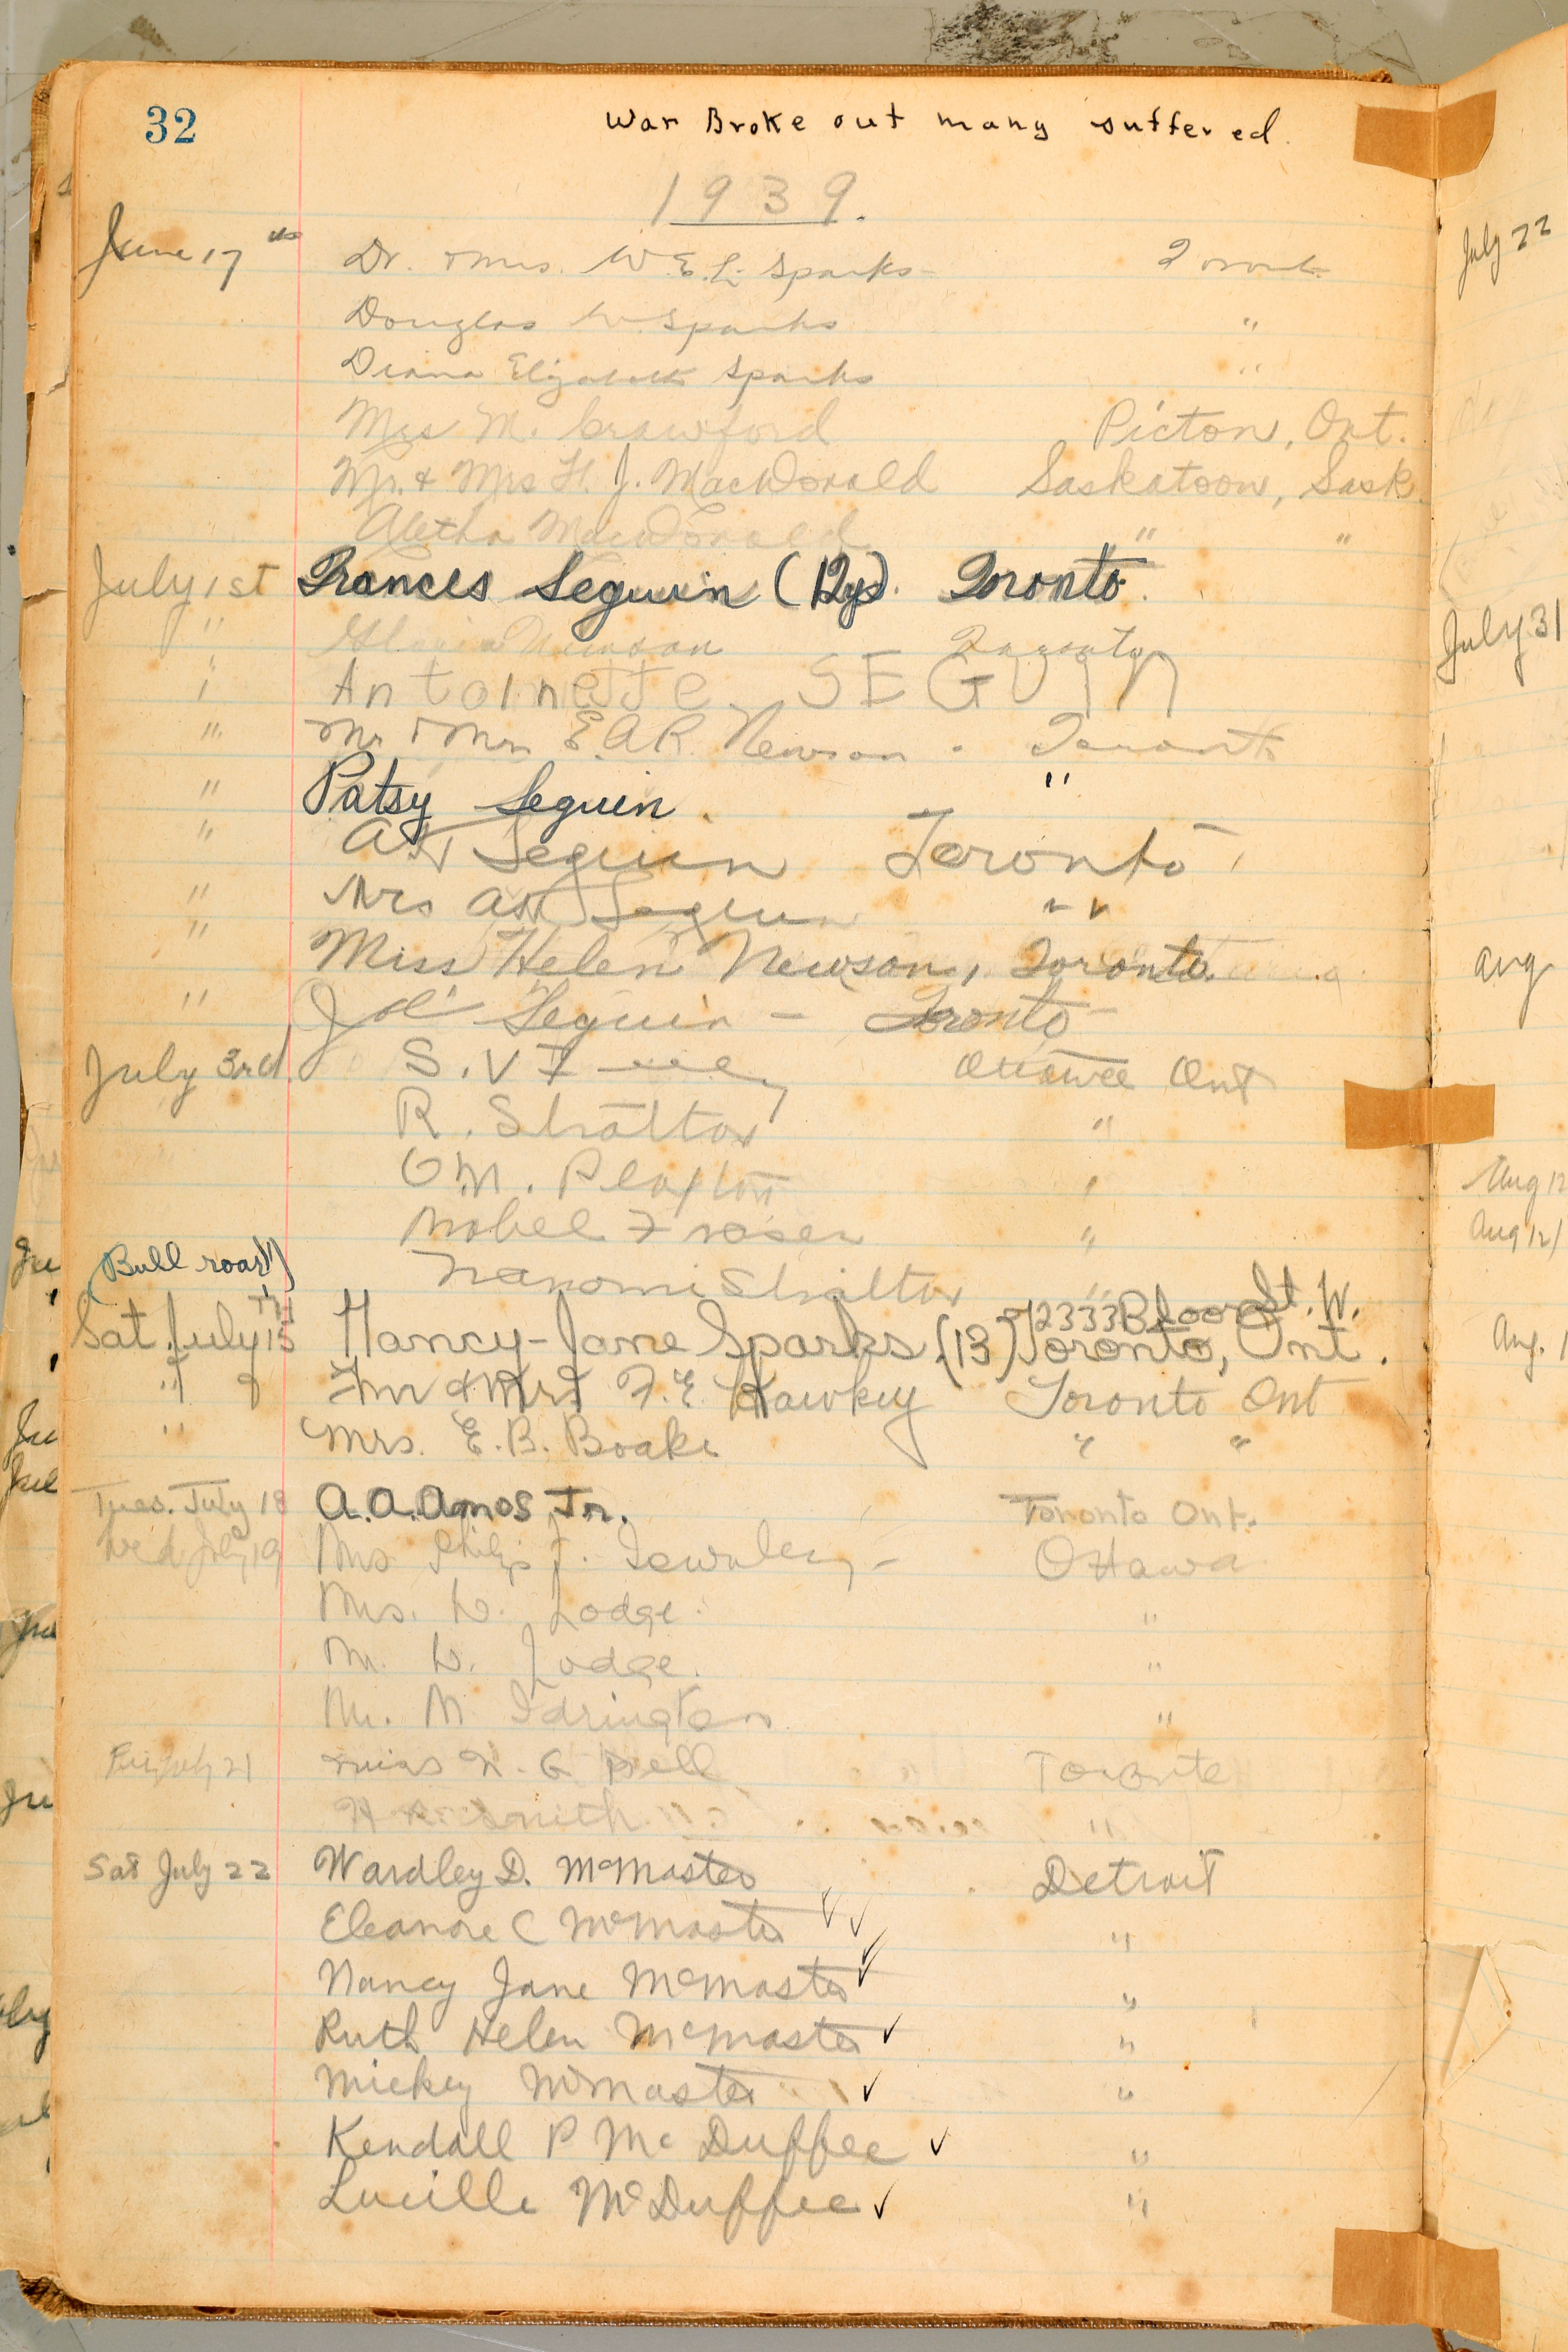 32
War Broke out many suffered.
1939.
June 17th Dr. & Mrs. W. E. L. Sparks Toronto
Douglas W. Sparks "
Diana Elizabeth Sparks "
Mrs M. Crawford Picton, Ont.
Mr. & Mrs H. J. MacDonald Saskatoon, Sask.
Aletha MacDonald " "
July 1st Frances Seguin (12yrs). Toronto.
" Newson Toronto
" Antoinette SEGUIN
" Mr & Mrs E.A.R. Newson. Toronto
" Patsy Seguin. "
" Seguin Toronto
" Mrs Seguin " "
" Miss Helen Newson, Toronto.
" Joe Seguin - Toronto
July 3rd. S. V Ottawa Ont
R. Stratton "
M. Playton "
Mabel Fraser "
Stratton "
(Bull roar!!)
2333 Bloor St. W.
Sat July 15TH Nancy-Jane Sparks (13) Toronto, Ont.
" Mr & Mrs F. E. Hawkey Toronto Ont
" Mrs. E. B. Boake " "
Tues. July 18 A.A. Amos Jr. Toronto Ont.
Wed July 19 Mrs Philip J. Townley - Ottawa
Mrs. W. Lodge. "
Mr. W. Lodge. "
Mr. M "
Fri July 21 Miss N. G. Bell Toronto
Smith "
Sat July 22 Wardley D. McMaster Detroit
Eleanore C McMaster ✓✓ "
Nancy Jane McMaster ✓ "
Ruth Helen McMaster ✓ "
Mickey McMaster ✓ "
Kendall P McDuffee ✓ "
Lucille McDuffee ✓ "
July 22
July 31
Aug
Aug 12
Aug 12
Aug. 1